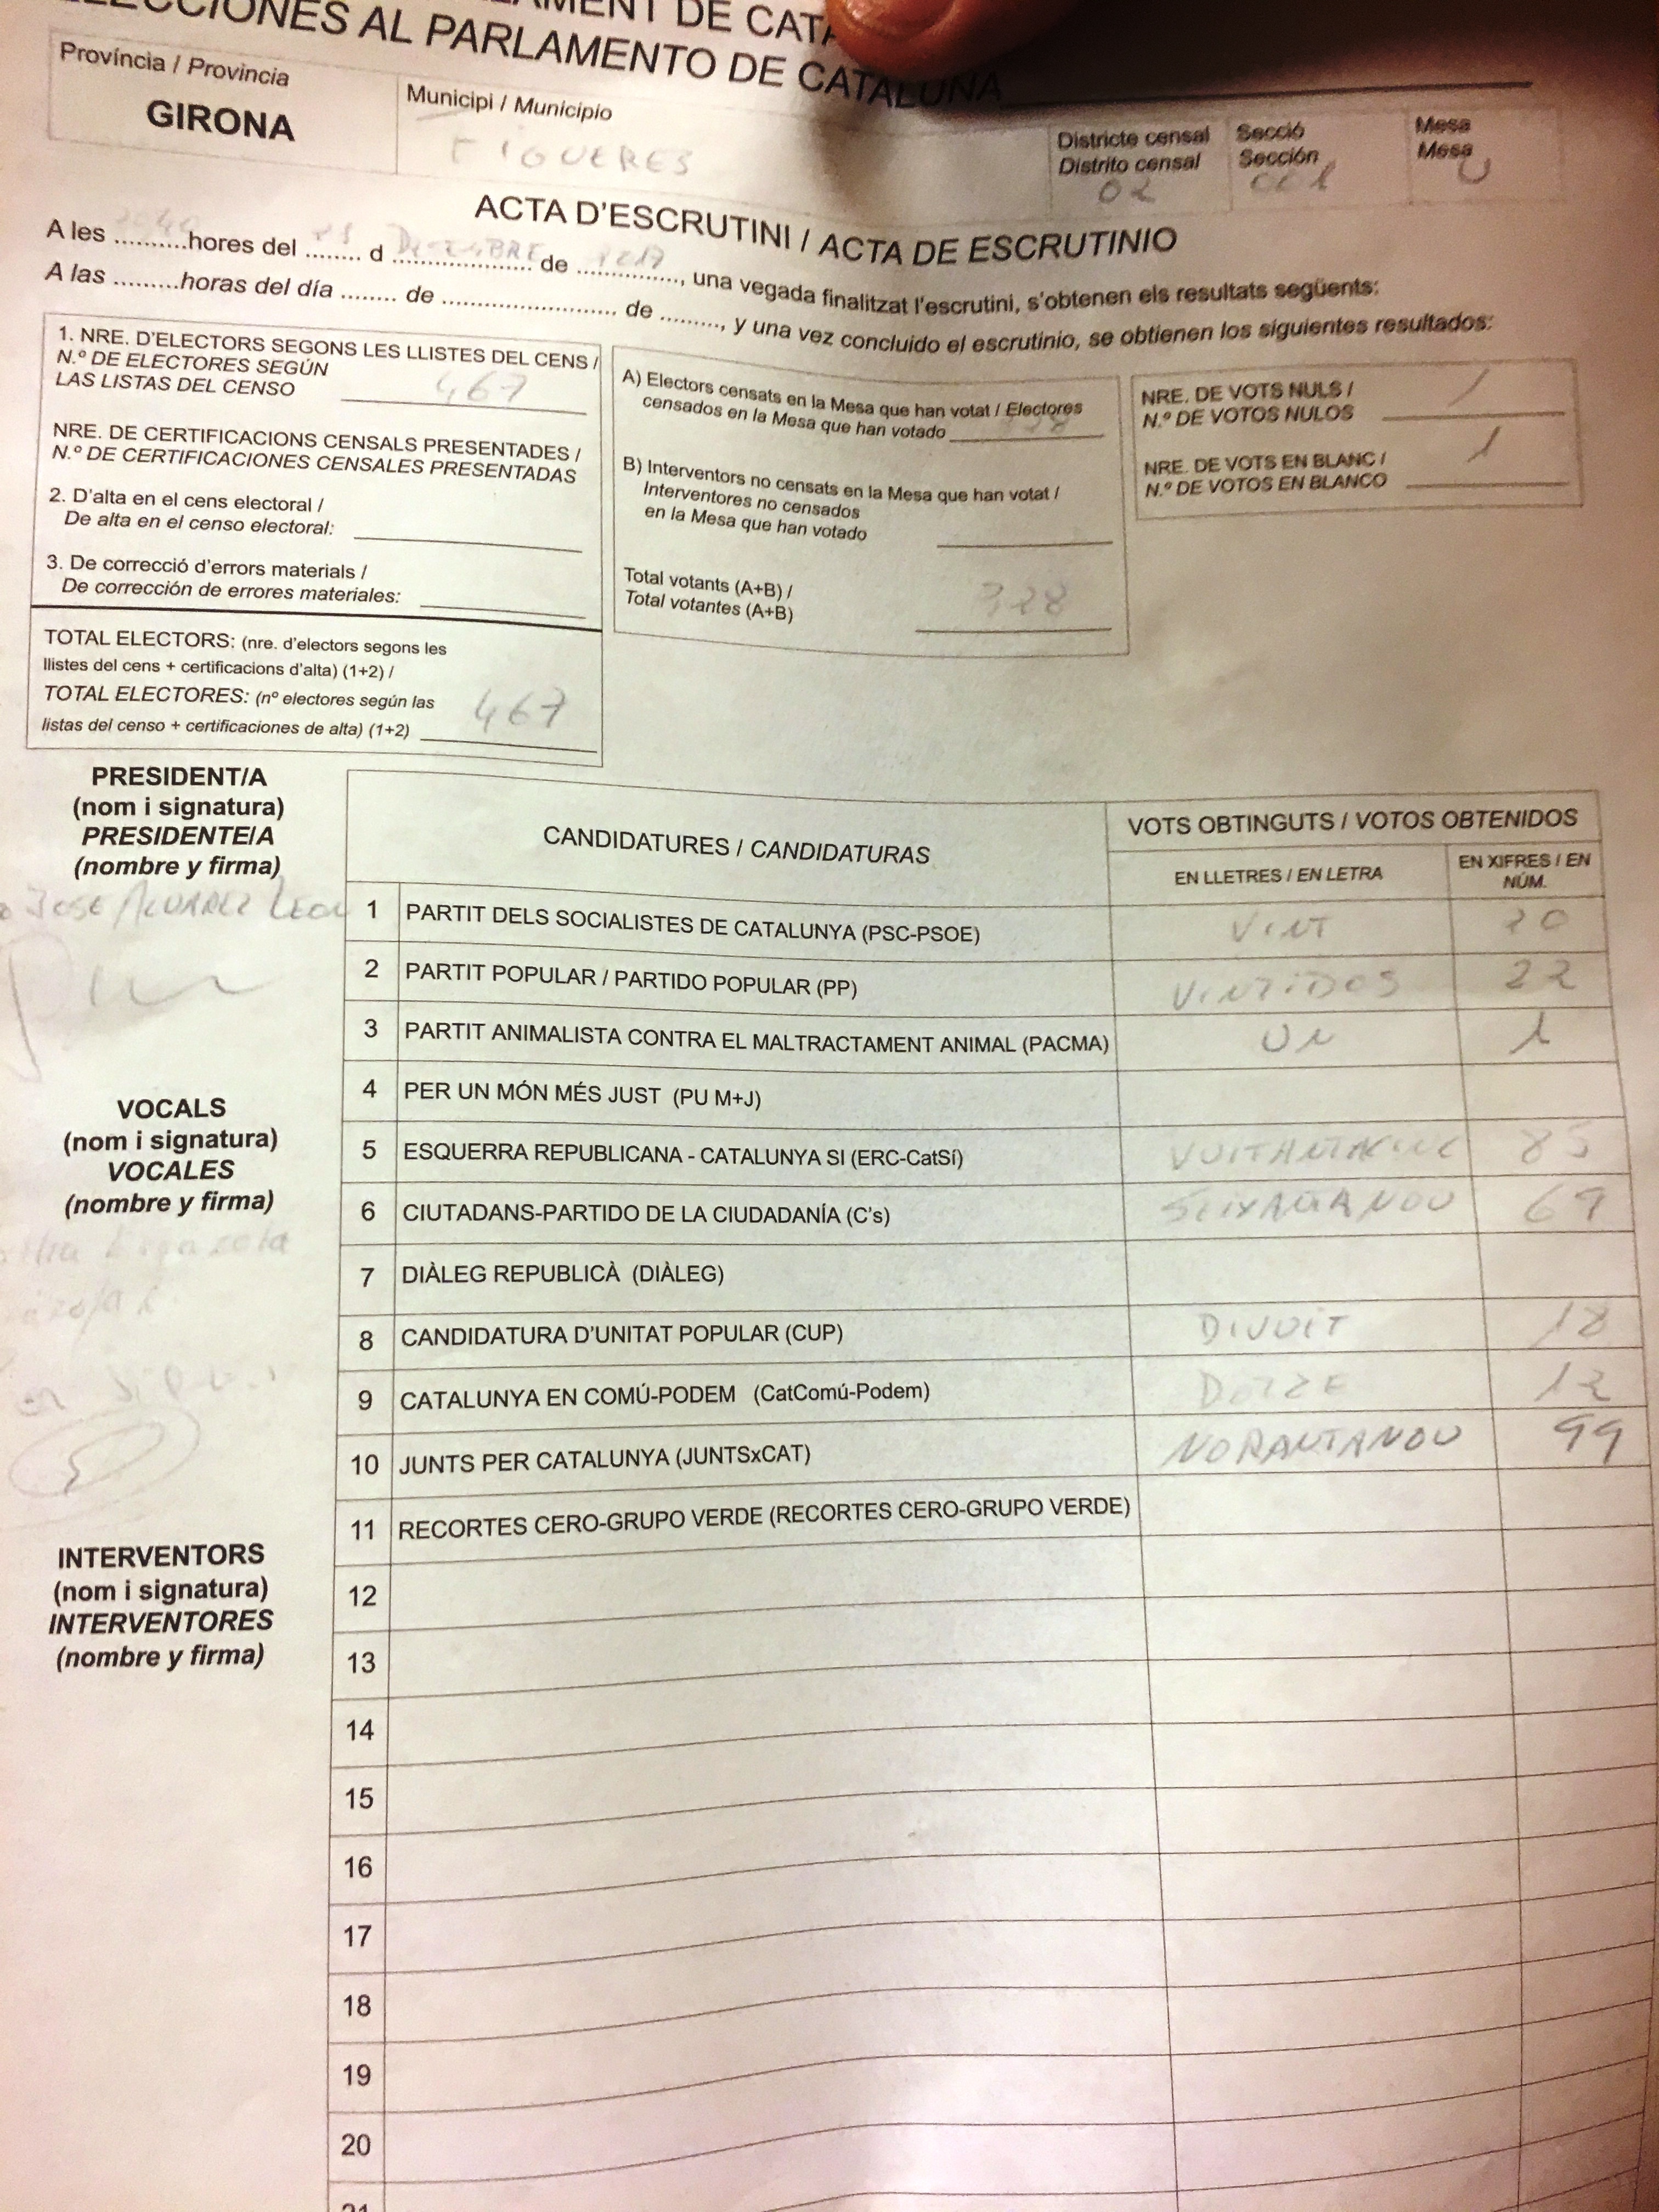 PARLAMENT DE CATA
ELECCIONES AL PARLAMENTO DE CATALUÑA
Província / Provincia
GIRONA
Municipi / Municipio
FIGUERES
Districte censal
Distrito censal
02
Secció
Sección
001
Mesa
Mesa
U
ACTA D'ESCRUTINI / ACTA DE ESCRUTINIO
A les ..........hores del ........ d DESEMBRE de 2017, una vegada finalitzat l'escrutini, s'obtenen els resultats següents:
A las .........horas del día ........ de ............................ de ........., y una vez concluido el escrutinio, se obtienen los siguientes resultados:
1. NRE. D'ELECTORS SEGONS LES LLISTES DEL CENS /
N.º DE ELECTORES SEGÚN
LAS LISTAS DEL CENSO 467
NRE. DE CERTIFICACIONS CENSALS PRESENTADES /
N.º DE CERTIFICACIONES CENSALES PRESENTADAS
2. D'alta en el cens electoral /
De alta en el censo electoral:
3. De correcció d'errors materials /
De corrección de errores materiales:
TOTAL ELECTORS: (nre. d'electors segons les
llistes del cens + certificacions d'alta) (1+2) /
TOTAL ELECTORES: (nº electores según las
listas del censo + certificaciones de alta) (1+2) 467
A) Electors censats en la Mesa que han votat / Electores
censados en la Mesa que han votado 328
B) Interventors no censats en la Mesa que han votat /
Interventores no censados
en la Mesa que han votado
Total votants (A+B) /
Total votantes (A+B) 328
NRE. DE VOTS NULS /
N.º DE VOTOS NULOS 1
NRE. DE VOTS EN BLANC /
N.º DE VOTOS EN BLANCO 1
PRESIDENT/A
(nom i signatura)
PRESIDENTE/A
(nombre y firma)
JOSE ALVAREZ LEON
VOCALS
(nom i signatura)
VOCALES
(nombre y firma)
INTERVENTORS
(nom i signatura)
INTERVENTORES
(nombre y firma)
CANDIDATURES / CANDIDATURAS
VOTS OBTINGUTS / VOTOS OBTENIDOS
EN LLETRES / EN LETRA
EN XIFRES / EN
NÚM.
1 PARTIT DELS SOCIALISTES DE CATALUNYA (PSC-PSOE) VINT 20
2 PARTIT POPULAR / PARTIDO POPULAR (PP) VINTIDOS 22
3 PARTIT ANIMALISTA CONTRA EL MALTRACTAMENT ANIMAL (PACMA) UN 1
4 PER UN MÓN MÉS JUST (PU M+J)
5 ESQUERRA REPUBLICANA - CATALUNYA SI (ERC-CatSí) VUITANTACINC 85
6 CIUTADANS-PARTIDO DE LA CIUDADANÍA (C's) SEIXANTANOU 69
7 DIÀLEG REPUBLICÀ (DIÀLEG)
8 CANDIDATURA D'UNITAT POPULAR (CUP) DIVUIT 18
9 CATALUNYA EN COMÚ-PODEM (CatComú-Podem) DOTZE 12
10 JUNTS PER CATALUNYA (JUNTSxCAT) NORANTANOU 99
11 RECORTES CERO-GRUPO VERDE (RECORTES CERO-GRUPO VERDE)
12
13
14
15
16
17
18
19
20
21